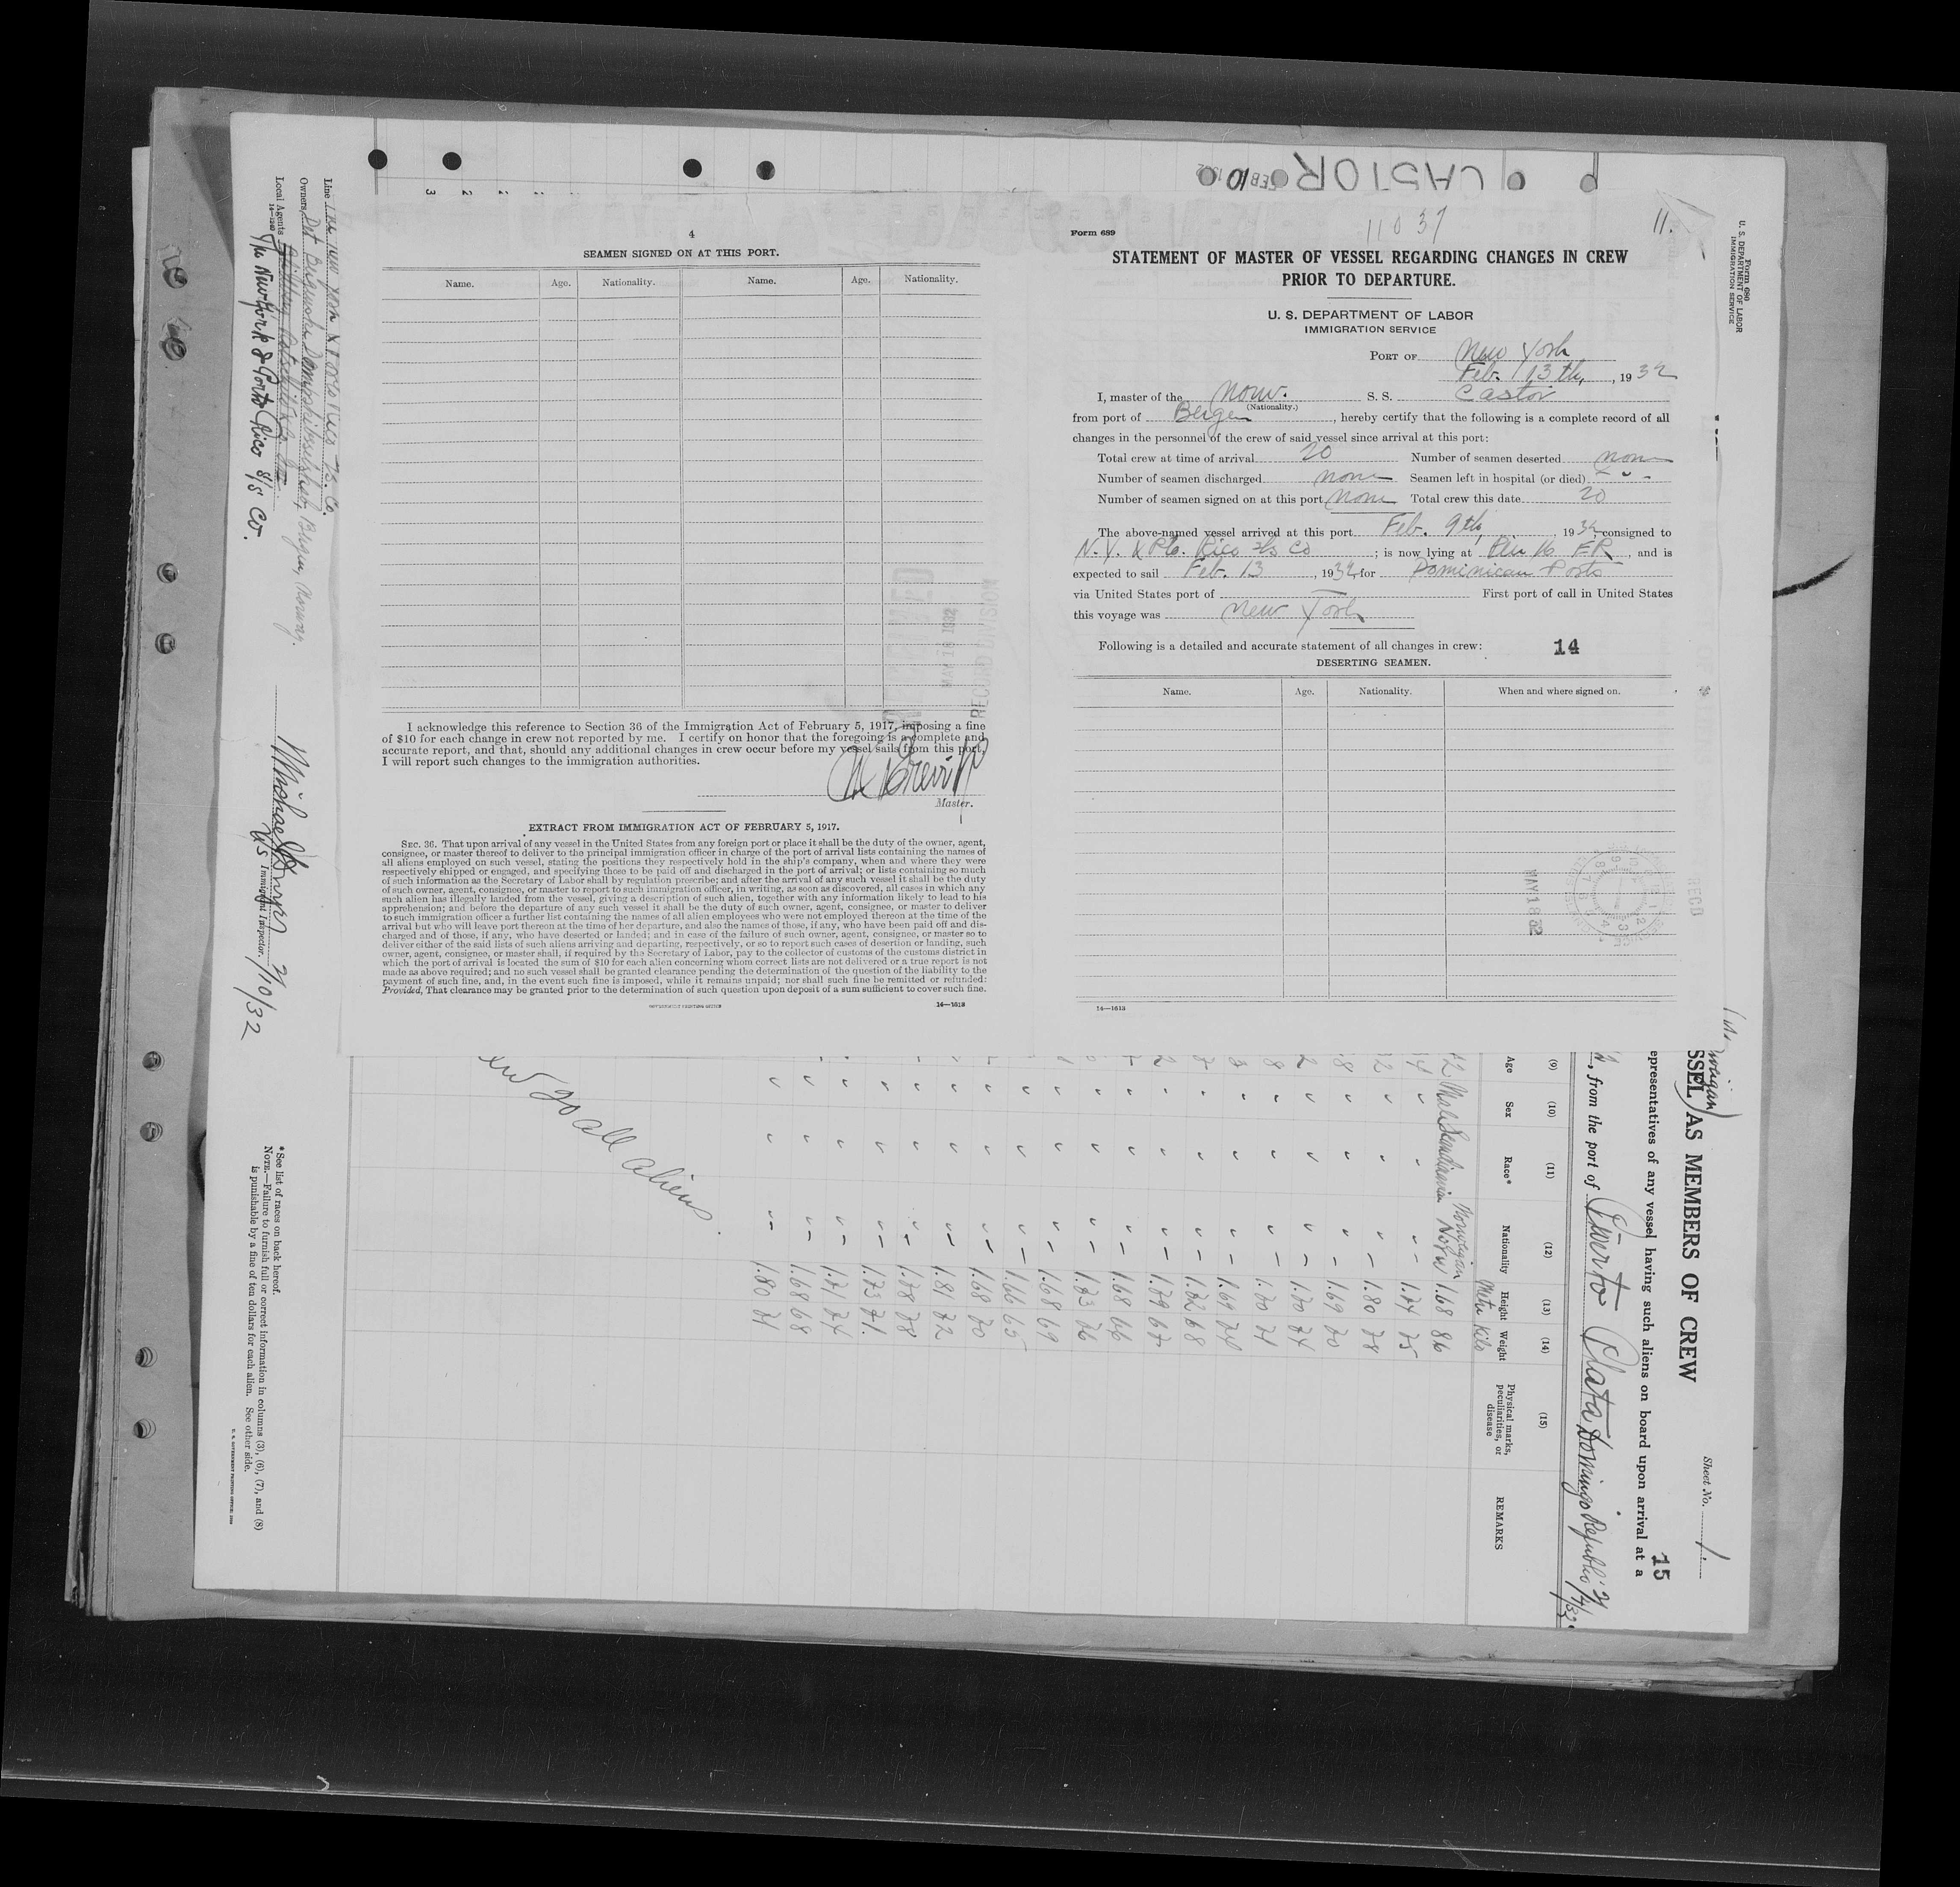 CASTOR
FEB 10 1932
4
SEAMEN SIGNED ON AT THIS PORT.
Name. Age. Nationality. Name. Age. Nationality.
I acknowledge this reference to Section 36 of the Immigration Act of February 5, 1917, imposing a fine
of $10 for each change in crew not reported by me. I certify on honor that the foregoing is a complete and
accurate report, and that, should any additional changes in crew occur before my vessel sails from this port,
I will report such changes to the immigration authorities.
Master.
EXTRACT FROM IMMIGRATION ACT OF FEBRUARY 5, 1917.
SEC. 36. That upon arrival of any vessel in the United States from any foreign port or place it shall be the duty of the owner, agent,
consignee, or master thereof to deliver to the principal immigration officer in charge of the port of arrival lists containing the names of
all aliens employed on such vessel, stating the positions they respectively hold in the ship's company, when and where they were
respectively shipped or engaged, and specifying those to be paid off and discharged in the port of arrival; or lists containing so much
of such information as the Secretary of Labor shall by regulation prescribe; and after the arrival of any such vessel it shall be the duty
of such owner, agent, consignee, or master to report to such immigration officer, in writing, as soon as discovered, all cases in which any
such alien has illegally landed from the vessel, giving a description of such alien, together with any information likely to lead to his
apprehension; and before the departure of any such vessel it shall be the duty of such owner, agent, consignee, or master to deliver
to such immigration officer a further list containing the names of all alien employees who were not employed thereon at the time of the
arrival but who will leave port thereon at the time of her departure, and also the names of those, if any, who have been paid off and dis-
charged and of those, if any, who have deserted or landed; and in case of the failure of such owner, agent, consignee, or master so to
deliver either of the said lists of such aliens arriving and departing, respectively, or so to report such cases of desertion or landing, such
owner, agent, consignee, or master shall, if required by the Secretary of Labor, pay to the collector of customs of the customs district in
which the port of arrival is located the sum of $10 for each alien concerning whom correct lists are not delivered or a true report is not
made as above required; and no such vessel shall be granted clearance pending the determination of the question of the liability to the
payment of such fine, and, in the event such fine is imposed, while it remains unpaid; nor shall such fine be remitted or refunded:
Provided, That clearance may be granted prior to the determination of such question upon deposit of a sum sufficient to cover such fine.
14—1613
11037
11.
Form 689
STATEMENT OF MASTER OF VESSEL REGARDING CHANGES IN CREW
PRIOR TO DEPARTURE.
U. S. DEPARTMENT OF LABOR
IMMIGRATION SERVICE
PORT OF New York
Feb. 13th, , 1932
I, master of the Norw. S. S. Castor
(Nationality.)
from port of Bergen, hereby certify that the following is a complete record of all
changes in the personnel of the crew of said vessel since arrival at this port:
Total crew at time of arrival 20 Number of seamen deserted none
Number of seamen discharged none Seamen left in hospital (or died)
Number of seamen signed on at this port none Total crew this date 20
The above-named vessel arrived at this port Feb. 9th, , 1932, consigned to
N. Y. & Pto. Rico S/s Co ; is now lying at Pier 16 ER, and is
expected to sail Feb. 13, 1932, for Dominican Ports
via United States port of First port of call in United States
this voyage was New York
Following is a detailed and accurate statement of all changes in crew: 14
DESERTING SEAMEN.
Name. Age. Nationality. When and where signed on.
MAY 18 32
RECD
14—1613
Form 680
U. S. DEPARTMENT OF LABOR
IMMIGRATION SERVICE
Sheet No. 1.
SSEL AS MEMBERS OF CREW
15
epresentatives of any vessel having such aliens on board upon arrival at a
, from the port of Puerto Plata, Domingo Republic 2/4/32.
(9) (10) (11) (12) (13) (14) (15)
Age Sex Race* Nationality Height Weight Physical marks, peculiarities, or disease REMARKS
Metr Kilo
Norwegian
42 Male Scandinavian Norw 1.68 86
1.74 75
1.80 78
1.69 70
1.70 74
1.70 71
1.69 74
1.72 68
1.79 67
1.68 66
1.73 76
1.68 69
1.66 65
1.68 70
1.81 72
1.78 78
1.73 71.
1.71 74
1.68 68
1.80 71
go all aliens
Line The New York & Porto Rico S/s. Co.
Owners Det Bergenske Dampskibsselskab, Bergen, Norway.
Local Agents
14—1240
The New York & Porto Rico S/S Co.
U S Immigrant Inspector. 2/10/32
*See list of races on back hereof.
NOTE.—Failure to furnish full or correct information in columns (3), (6), (7), and (8)
is punishable by a fine of ten dollars for each alien. See other side.